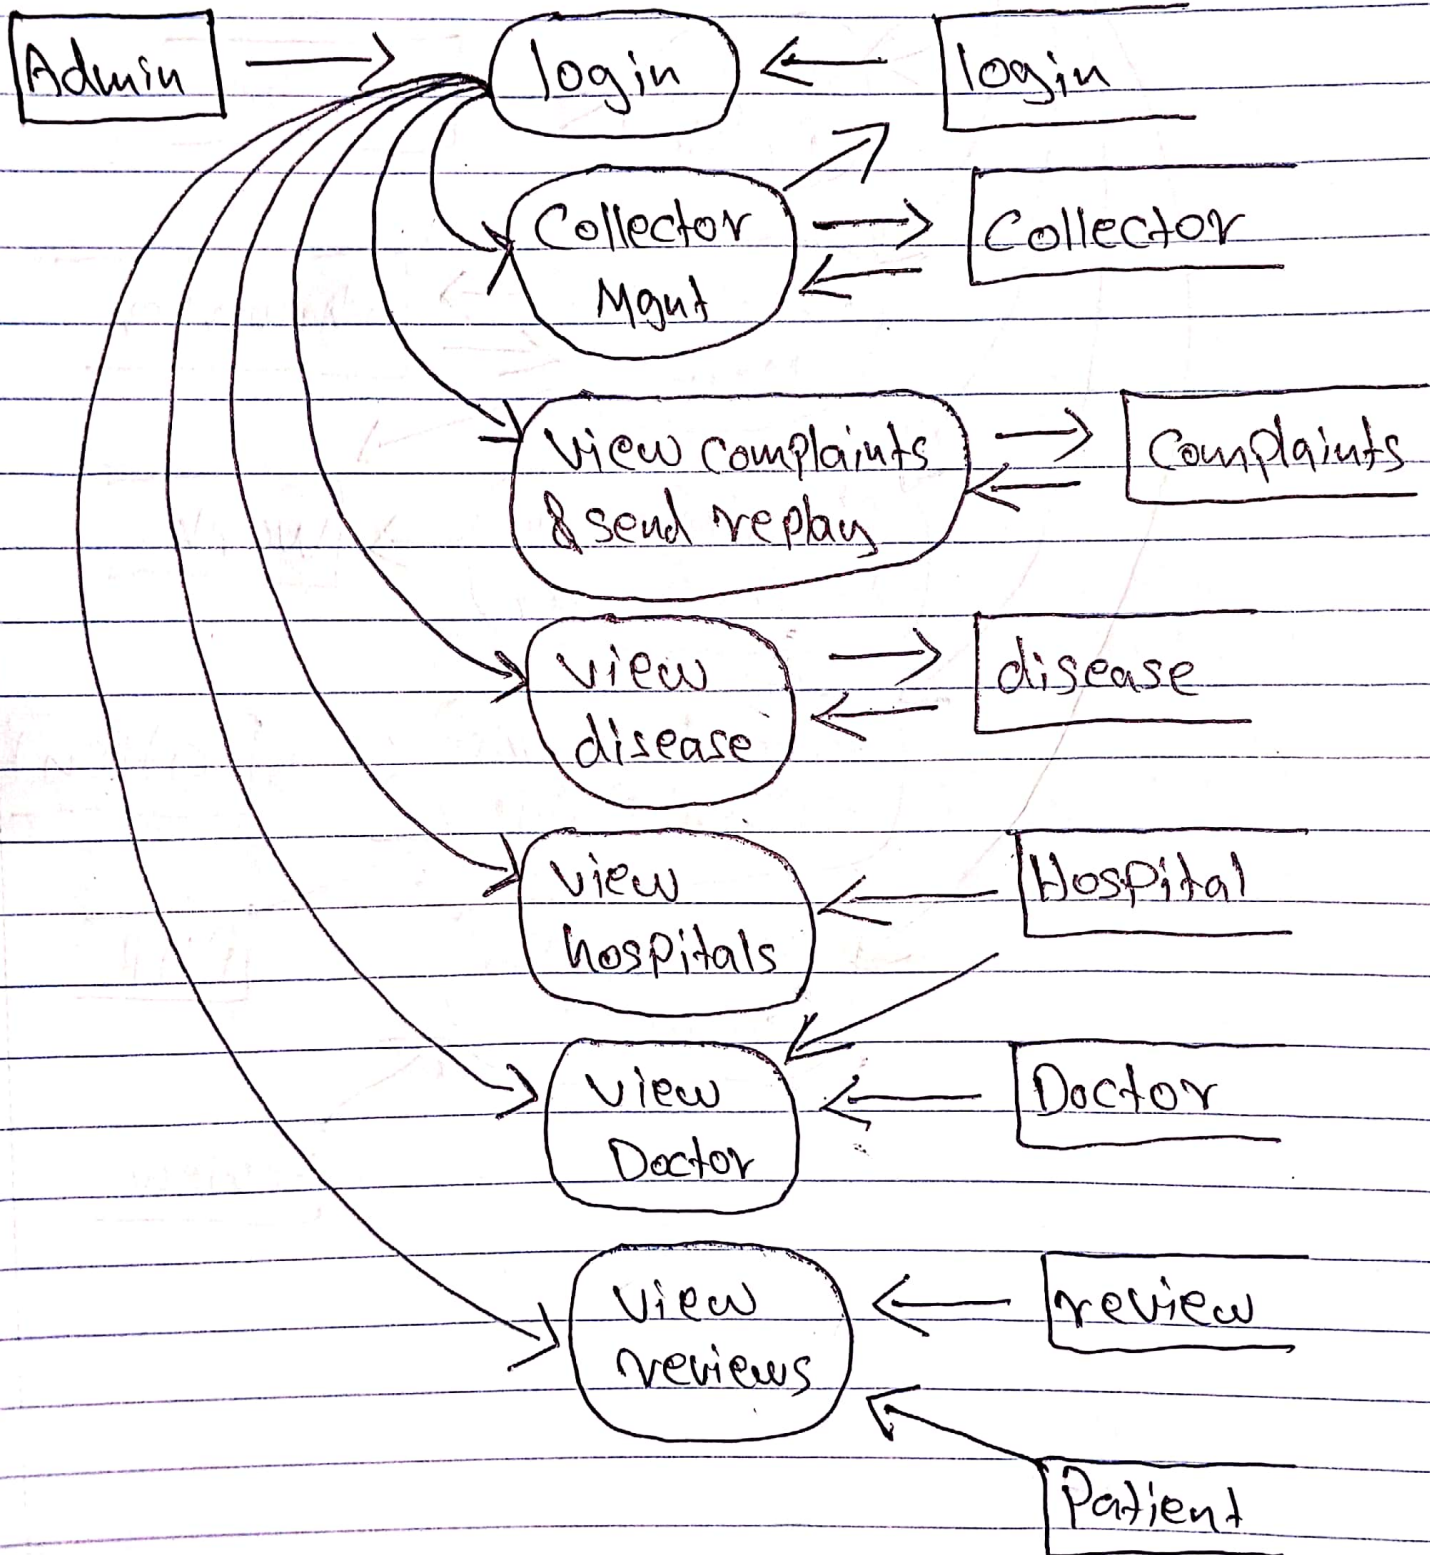 Admin
login
login
Collector
Mgnt
Collector
view complaints
& send replay
Complaints
view
disease
disease
view
hospitals
Hospital
view
Doctor
Doctor
view
reviews
review
Patient